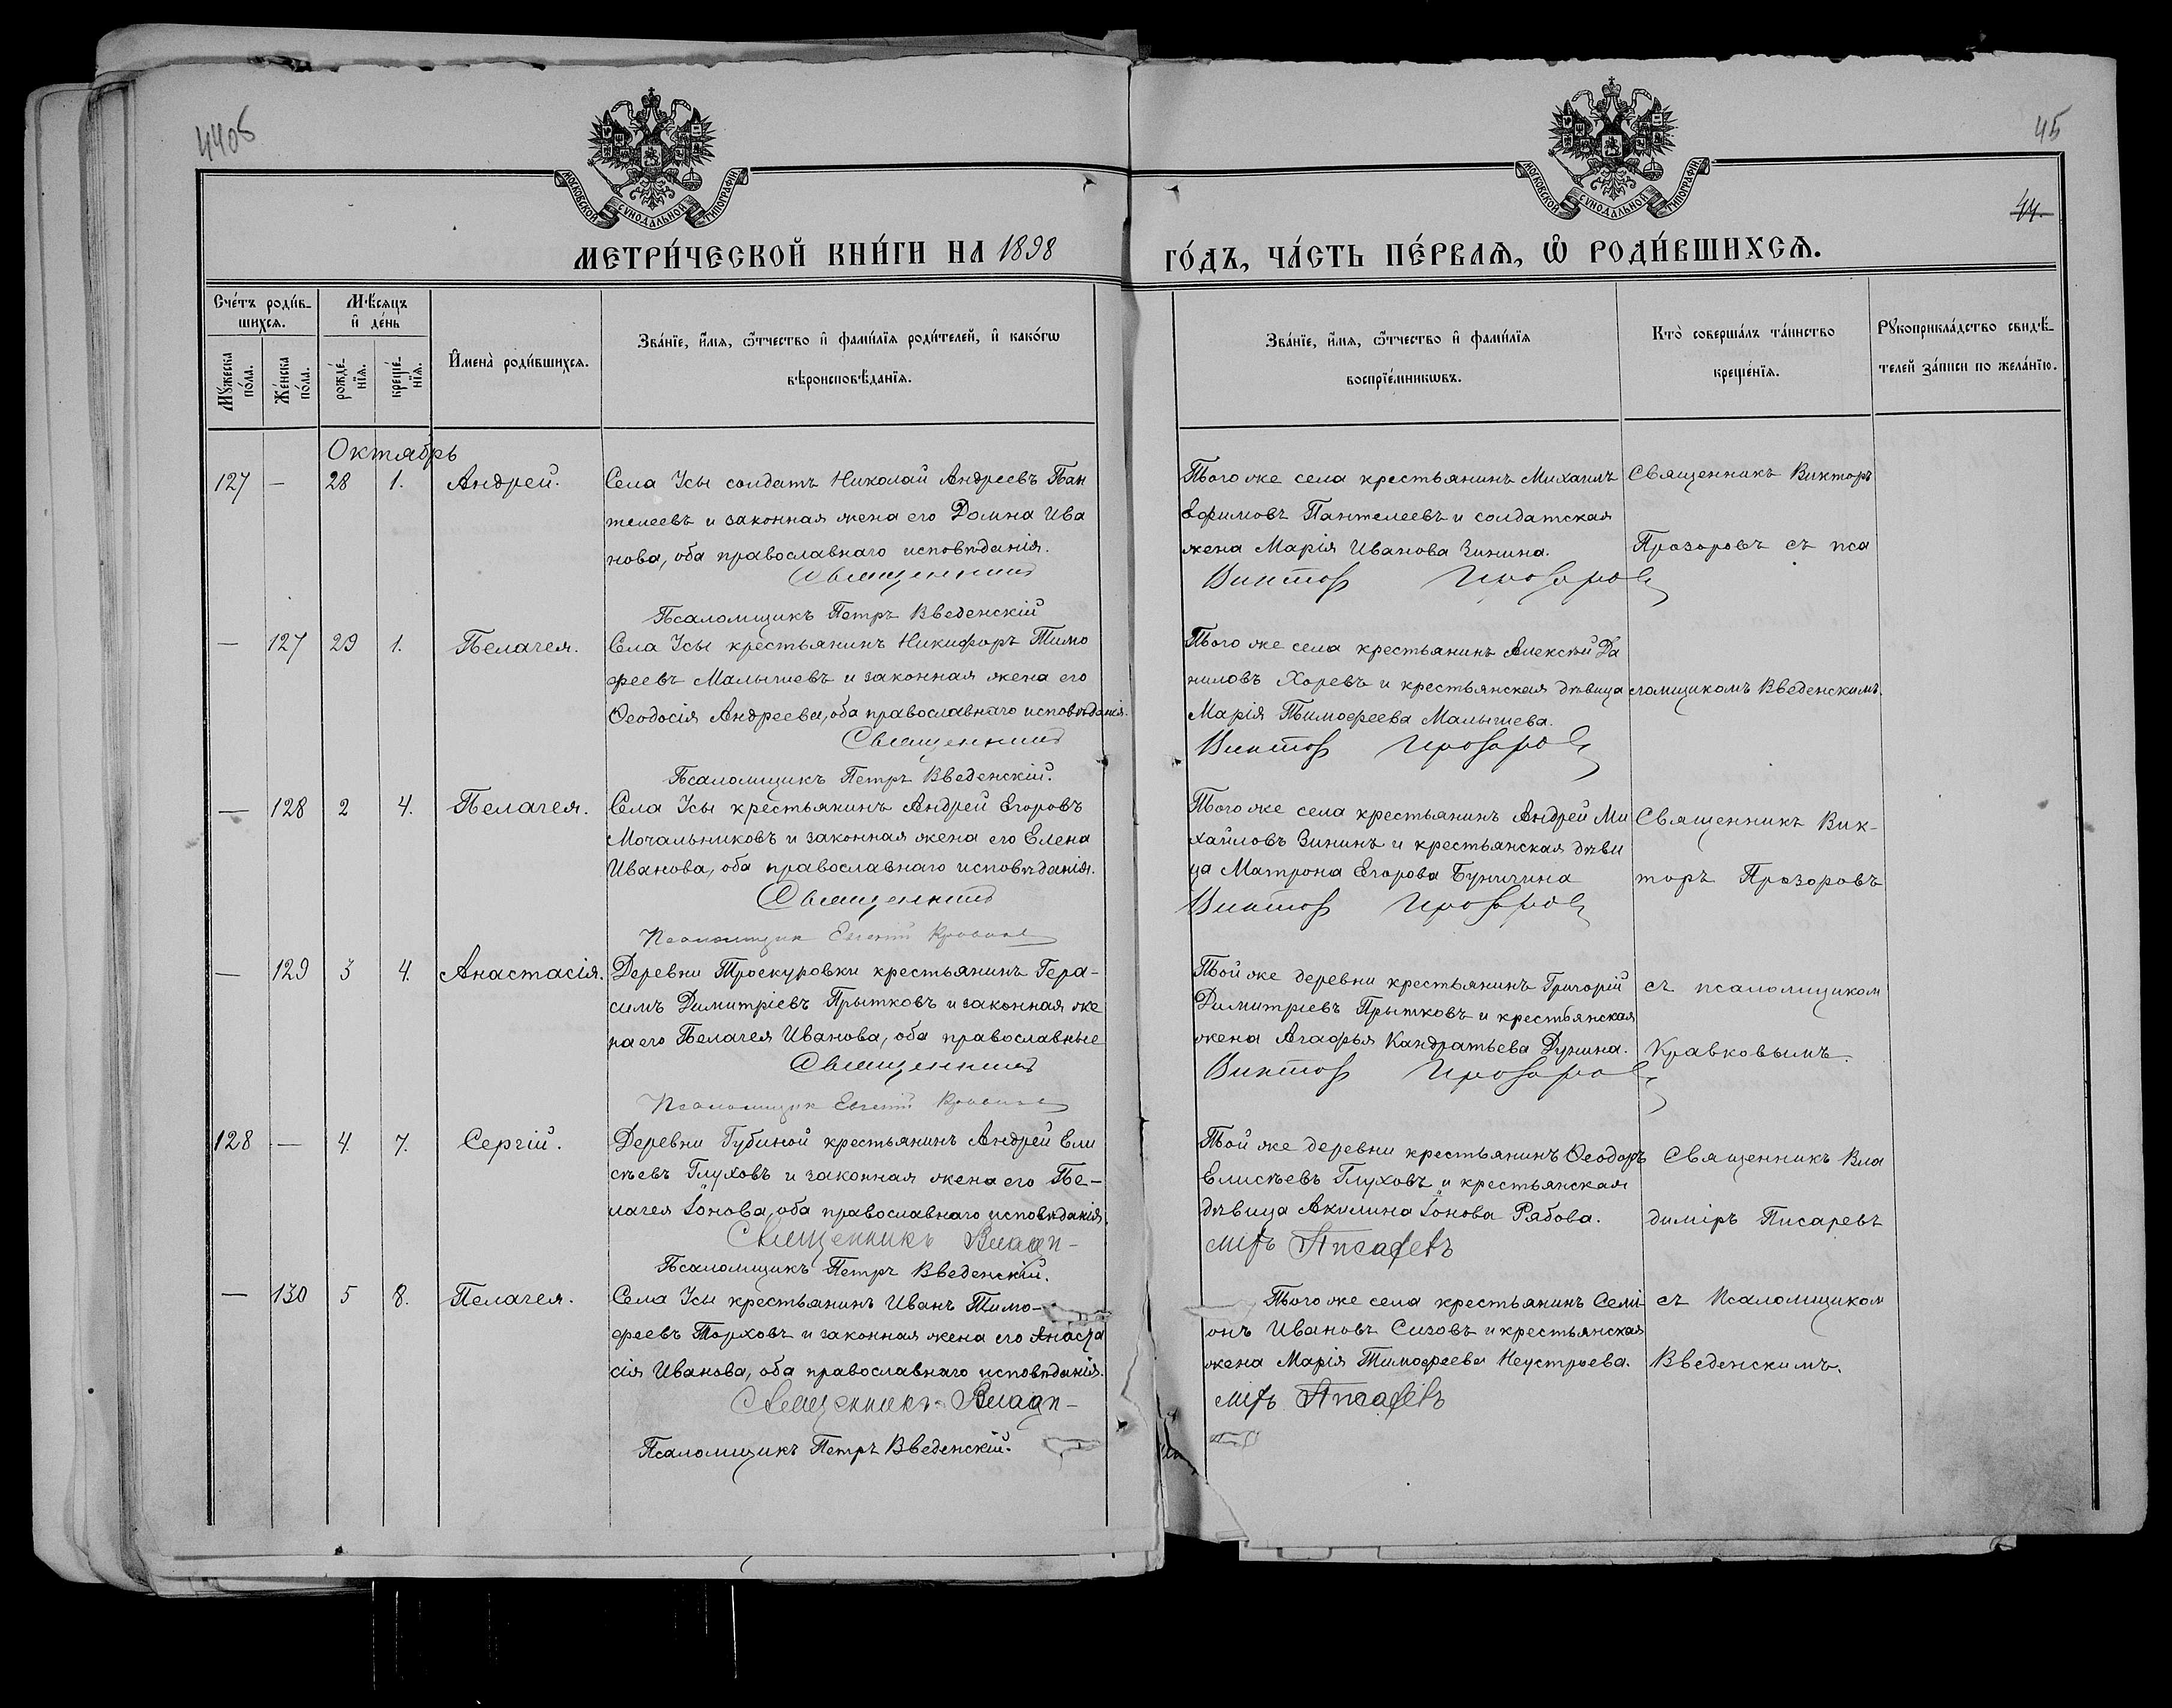 4406
45
44.
МОСКОВСКОЙ СѴНОДАЛЬНОЙ ТИПОГРАФІИ
МОСКОВСКОЙ СѴНОДАЛЬНОЙ ТИПОГРАФІИ
МЕТРИ́ЧЕСКОЙ КНИ́ГИ НА 1898
ГО́ДЪ, ЧА́СТЬ ПЕ́РВАѦ, Ѽ РОДИ́ВШИХСѦ.
Сче́тъ роди́в-
шихсѧ.
Мꙋ́жеска по́ла.
Же́нска по́ла.
Мѣ́сѧцъ
и҆ де́нь
рожде́-
нїѧ.
креще́-
нїѧ.
И҆мена̀ роди́вшихсѧ.
Зва́нїе, и҆́мѧ, ѻ҆́тчество и҆ фами́лїѧ роди́телей, и҆ како́гѡ
вѣроисповѣ́данїѧ.
Зва́нїе, и҆́мѧ, ѻ҆́тчество и҆ фами́лїѧ
воспрїе́мникѡвъ.
Кто̀ соверша́лъ та́инство
креще́нїѧ.
Рꙋкоприкла́дство свидѣ́-
телей за́писи по жела́нїю.
Октябрь
127 — 28 1. Андрей.
Села Усы солдатъ Николай Андреевъ Пан
телеевъ и законная жена его Домна Ива
нова, оба православнаго исповѣданія.
Священникъ
Псаломщикъ Петръ Введенскій
Того же села крестьянинъ Михаилъ
Ефимовъ Пантелеевъ и солдатская
жена Марія Иванова Зинина.
Викторъ Прозоровъ
Священникъ Викторъ
Прозоровъ съ пса
— 127 29 1. Пелагея.
Села Усы крестьянинъ Никифоръ Тимо
феевъ Малышевъ и законная жена его
Ѳеодосія Андреева, оба православнаго исповѣданія.
Священникъ
Псаломщикъ Петръ Введенскій.
Того же села крестьянинъ Алексѣй Да
ниловъ Хоревъ и крестьянская дѣвица
Марія Тимофеева Малышева.
Викторъ Прозоровъ
ломщикомъ Введенскимъ.
— 128 2 4. Пелагея.
Села Усы крестьянинъ Андрей Егоровъ
Мочальниковъ и законная жена его Елена
Иванова, оба православнаго исповѣданія.
Священникъ
Псаломщик Евгеній Кравков
Того же села крестьянинъ Андрей Ми
хайловъ Зининъ и крестьянская дѣви
ца Матрона Егорова
Викторъ Прозоровъ
Священникъ Вик-
торъ Прозоровъ
— 129 3 4. Анастасія.
Деревни Проскуровки крестьянинъ Гера-
симъ Димитріевъ Прытковъ и законная же
на его Пелагея Иванова, оба православные
Священникъ
Псаломщик Евгеній Кравков
Той же деревни крестьянинъ Григорій
Димитріевъ Прытковъ и крестьянская
жена Агафья Кандратьева
Викторъ Прозоровъ
съ псаломщиком
Кравковымъ.
128 — 4. 7. Сергій.
Деревни Губиной крестьянинъ Андрей Ели
сѣевъ Глуховъ и законная жена его Пе-
лагея Іонова, оба православнаго исповѣданія.
Священникъ Влади-
Псаломщикъ Петръ Введенскій.
Той же деревни крестьянинъ Ѳеодоръ
Елисѣевъ Глуховъ и крестьянская
дѣвица Акилина Іонова Рябова.
міръ Писаревъ
Священникъ Вла
диміръ Писаревъ
— 130 5 8. Пелагея.
Села Усы крестьянинъ Иванъ Тимо-
феевъ Торховъ и законная жена его Анаста
сія Иванова, оба православнаго исповѣданія.
Священникъ Влади-
Псаломщикъ Петръ Введенскій.
Того же села крестьянинъ Семі-
онъ Ивановъ Сизовъ и крестьянская
жена Марія Тимофеева Неустроева.
міръ Писаревъ
съ Псаломщиком
Введенскимъ.